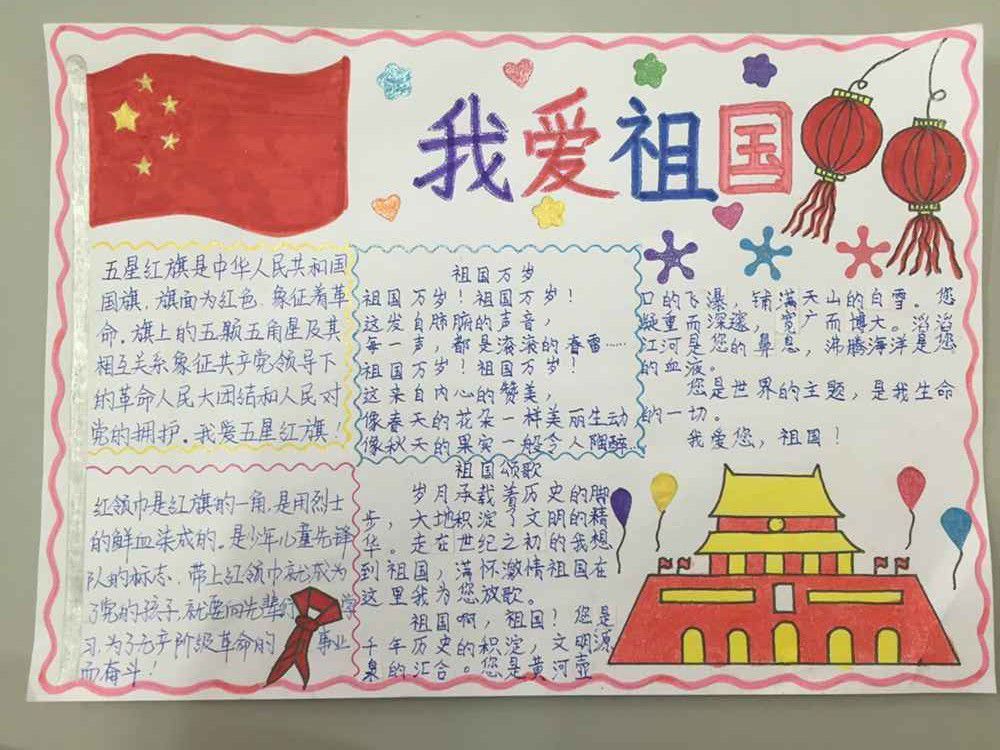 我爱祖国
五星红旗是中华人民共和国
国旗，旗面为红色，象征着革
命。旗上的五颗五角星及其
相互关系象征共产党领导下
的革命人民大团结和人民对
党的拥护。我爱五星红旗！
红领巾是红旗的一角，是用烈士
的鲜血染成的。是少年儿童先锋
队的标志，带上红领巾就成为
了党的孩子，就要向先辈们学
习，为了无产阶级革命的事业
而奋斗！
祖国万岁
祖国万岁！祖国万岁！
这发自肺腑的声音，
每一声，都是滚滚的春雷……
祖国万岁！祖国万岁！
这来自内心的赞美，
像春天的花朵一样美丽生动
像秋天的果实一般令人陶醉
祖国颂歌
岁月承载着历史的脚
步，大地积淀了文明的精
华。走在世纪之初的我想
到祖国，满怀激情祖国在
这里我为您放歌。
祖国啊，祖国！您是
千年历史的积淀，文明源
泉的汇合。您是黄河壶
口的飞瀑，铺满天山的白雪。您
凝重而深邃，宽广而博大。滔滔
江河是您的鼻息，沸腾海洋是您
的血液。
您是世界的主题，是我生命
的一切。
我爱您，祖国！